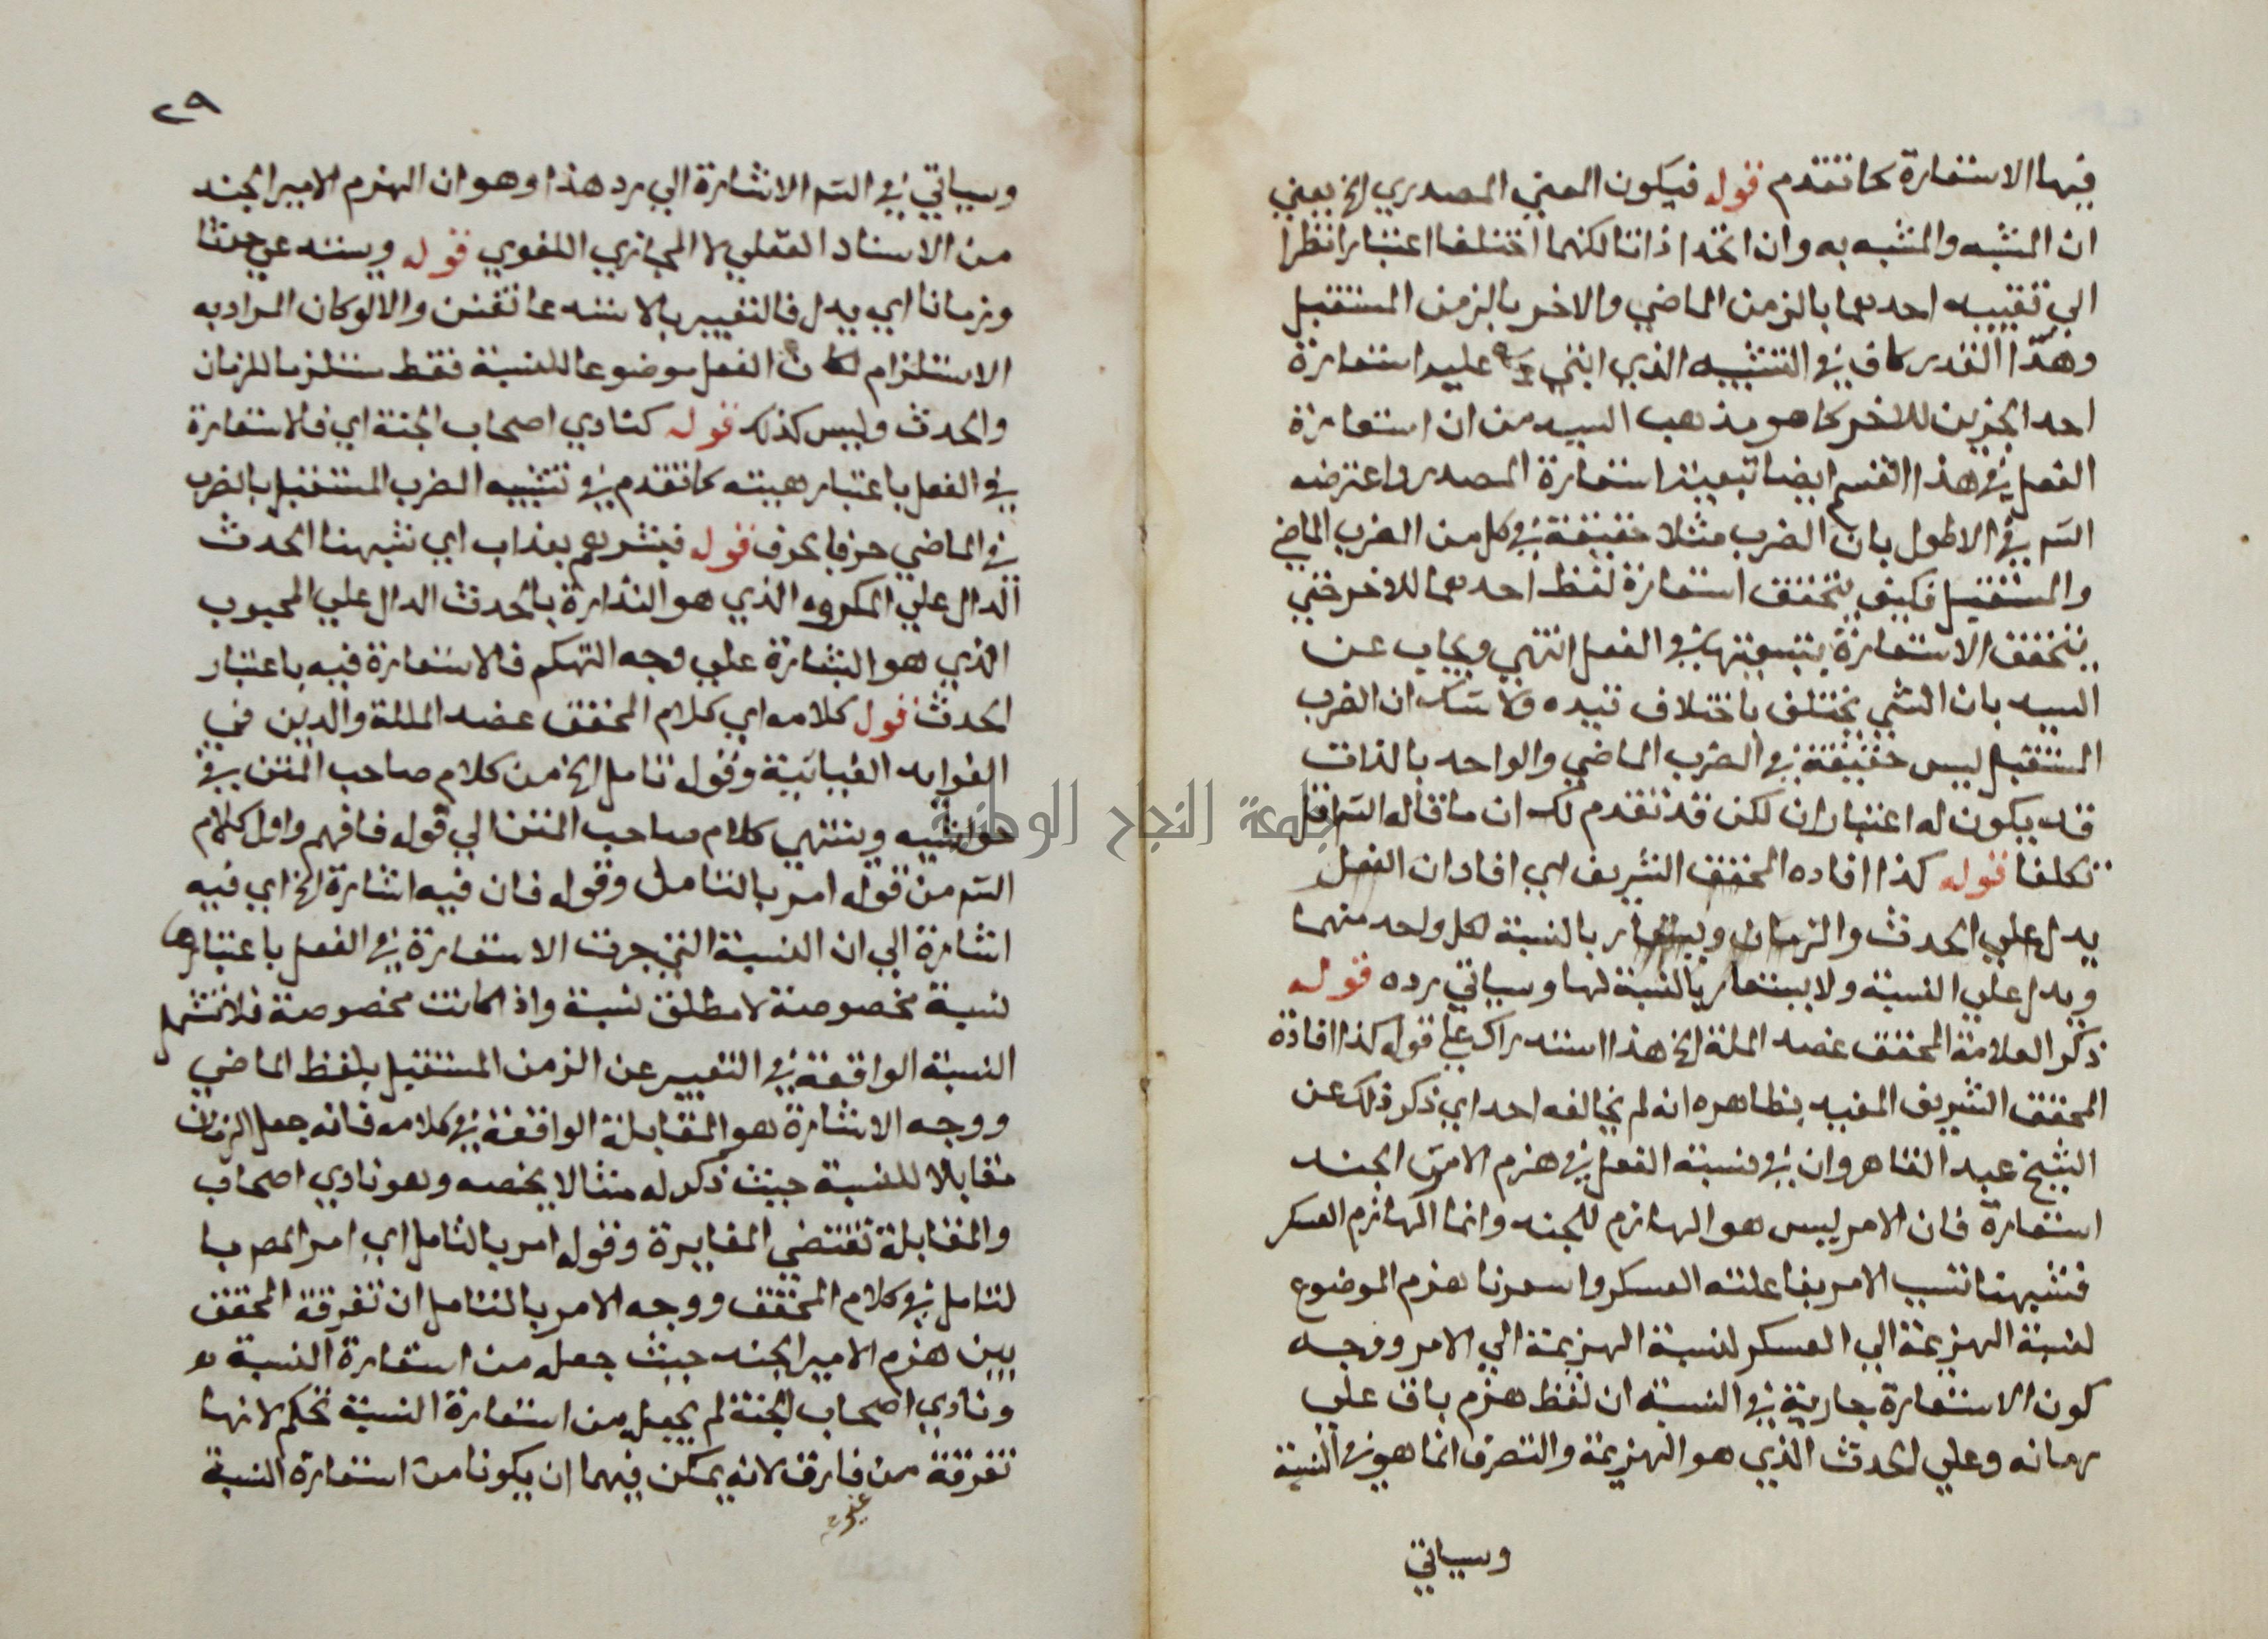 فيها الاستعارة كما تقدم قوله فيكون المعني المصدري الخ يعني
ان المشبه والمشبه به وان اتحدا ذاتا لكنهما اختلفا اعتبارا نظرا
الي تقييد احدهما بالزمن الماضي والاخر بالزمن المستقبل
وهذا القدر كاف في التشبيه الذي ابتني عليه استعارة
احد الجزين للاخر كما هو مذهب السيد من ان استعارة
الفعل في هذا القسم ايضا تبعية استعارة المصدر واعترضه
الشم في الاطول بان الضرب مثلا حقيقة في كل من الضرب الماضي
والمستقبل فكيف يتحقق استعارة لفظ احدهما للاخر حتي
يتحقق الاستعارة بتبعيتها في الفعل انتهي ويجاب عن
السيد بان الشي يختلف باختلاف قيده ولا شك ان الضرب
المستقبل ليس حقيقة في الضرب الماضي والواحد بالذات
قد يكون له اعتباران لكن قد تقدم لك ان ما قاله الشم اقل
تكلفا قوله كذا افاده المحقق الشريف اي افاد ان الفعل
يدل علي الحدث والزمان ويستعار بالنسبة لكل واحد منهما
ويدل علي النسبة ولا يستعار بالنسبة لها وسياتي رده قوله
ذكر العلامة المحقق عضد الملة الخ هذا استدراك علي قوله كذا افادة
المحقق الشريف المفيد بظاهره انه لم يخالفه احد اي ذكر ذلك عن
الشيخ عبد القاهر وان في نسبة الفعل في هزم الامير الجند
استعارة فان الامر ليس هو الهازم للجند وانما الهازم العسكر
فشبهنا تسبب الامر بفاعلته العسكر واسعرنا هزم الموضوع
لنسبة الهزيمة الي العسكر لنسبة الهزيمة الي الامر ووجه
كون الاستعارة جارية في النسبة ان لفظ هزم باق علي
زمانه وعلي الحدث الذي هو الهزيمة والتصرف انما هو في النسبة
وسياتي
٢٩
وسياتي في الشم الاشارة الي رد هذا وهو ان الهزم الامير الجند
من الاسناد العقلي لا المجازي اللغوي قوله ويسند عي حدثا
وزمانا اي يدل فالتغيير بالاستدعا تفنن والا لو كان المراد به
الاستلزام لكان الفعل موضوعا للنسبة فقط ستلزما للزمان
والحدث وليس كذلك قوله كنادي اصحاب الجنة اي فالاستعارة
في الفعل باعتبار هيئته كما تقدم في تشبيه الضرب المستقبل بالضرب
في الماضي حرفا بحرف قوله فبشرهم بعذاب اي شبهنا الحدث
الدال علي المكروه الذي هو النذارة بالحدث الدال علي المحبوب
الذي هو البشارة علي وجه التهكم فالاستعارة فيه باعتبار
الحدث قوله كلامه اي كلام المحقق عضد الملة والدين في
الفوايد الغياثية وقوله تامل الخ من كلام صاحب المتن في
حواشيه وينتهي كلام صاحب المتن الي قوله فافهم واول كلام
الشم من قوله امر بالتامل وقوله فان فيه اشارة الخ اي فيه
اشارة الي ان النسبة التي جرت الاستعارة في الفعل باعتبارها
نسبة مخصوصة لا مطلق نسبة واذا كانت مخصوصة فلا تشمل
النسبة الواقعة في التعبير عن الزمن المستقبل بلفظ الماضي
ووجه الاشارة هو المقابلة الواقعة في كلامه فانه جعل الزمان
مقابلا للنسبة حيث ذكر له مثالا يخصه وهو نادي اصحاب
والمقابلة تقتضي المغايرة وقوله امر بالتامل اي امر المصر با
لتامل في كلام المحقق ووجه الامر بالتامل ان تفرقة المحقق
بين هزم الامير الجند حيث جعله من استعارة النسبة
ونادي اصحاب الجنة لم يجعل من استعارة النسبة تحكم لانها
تفرقة من فارق لانه يمكن فيهما ان يكونا من استعارة النسبة
جامعة النجاح الوطنية